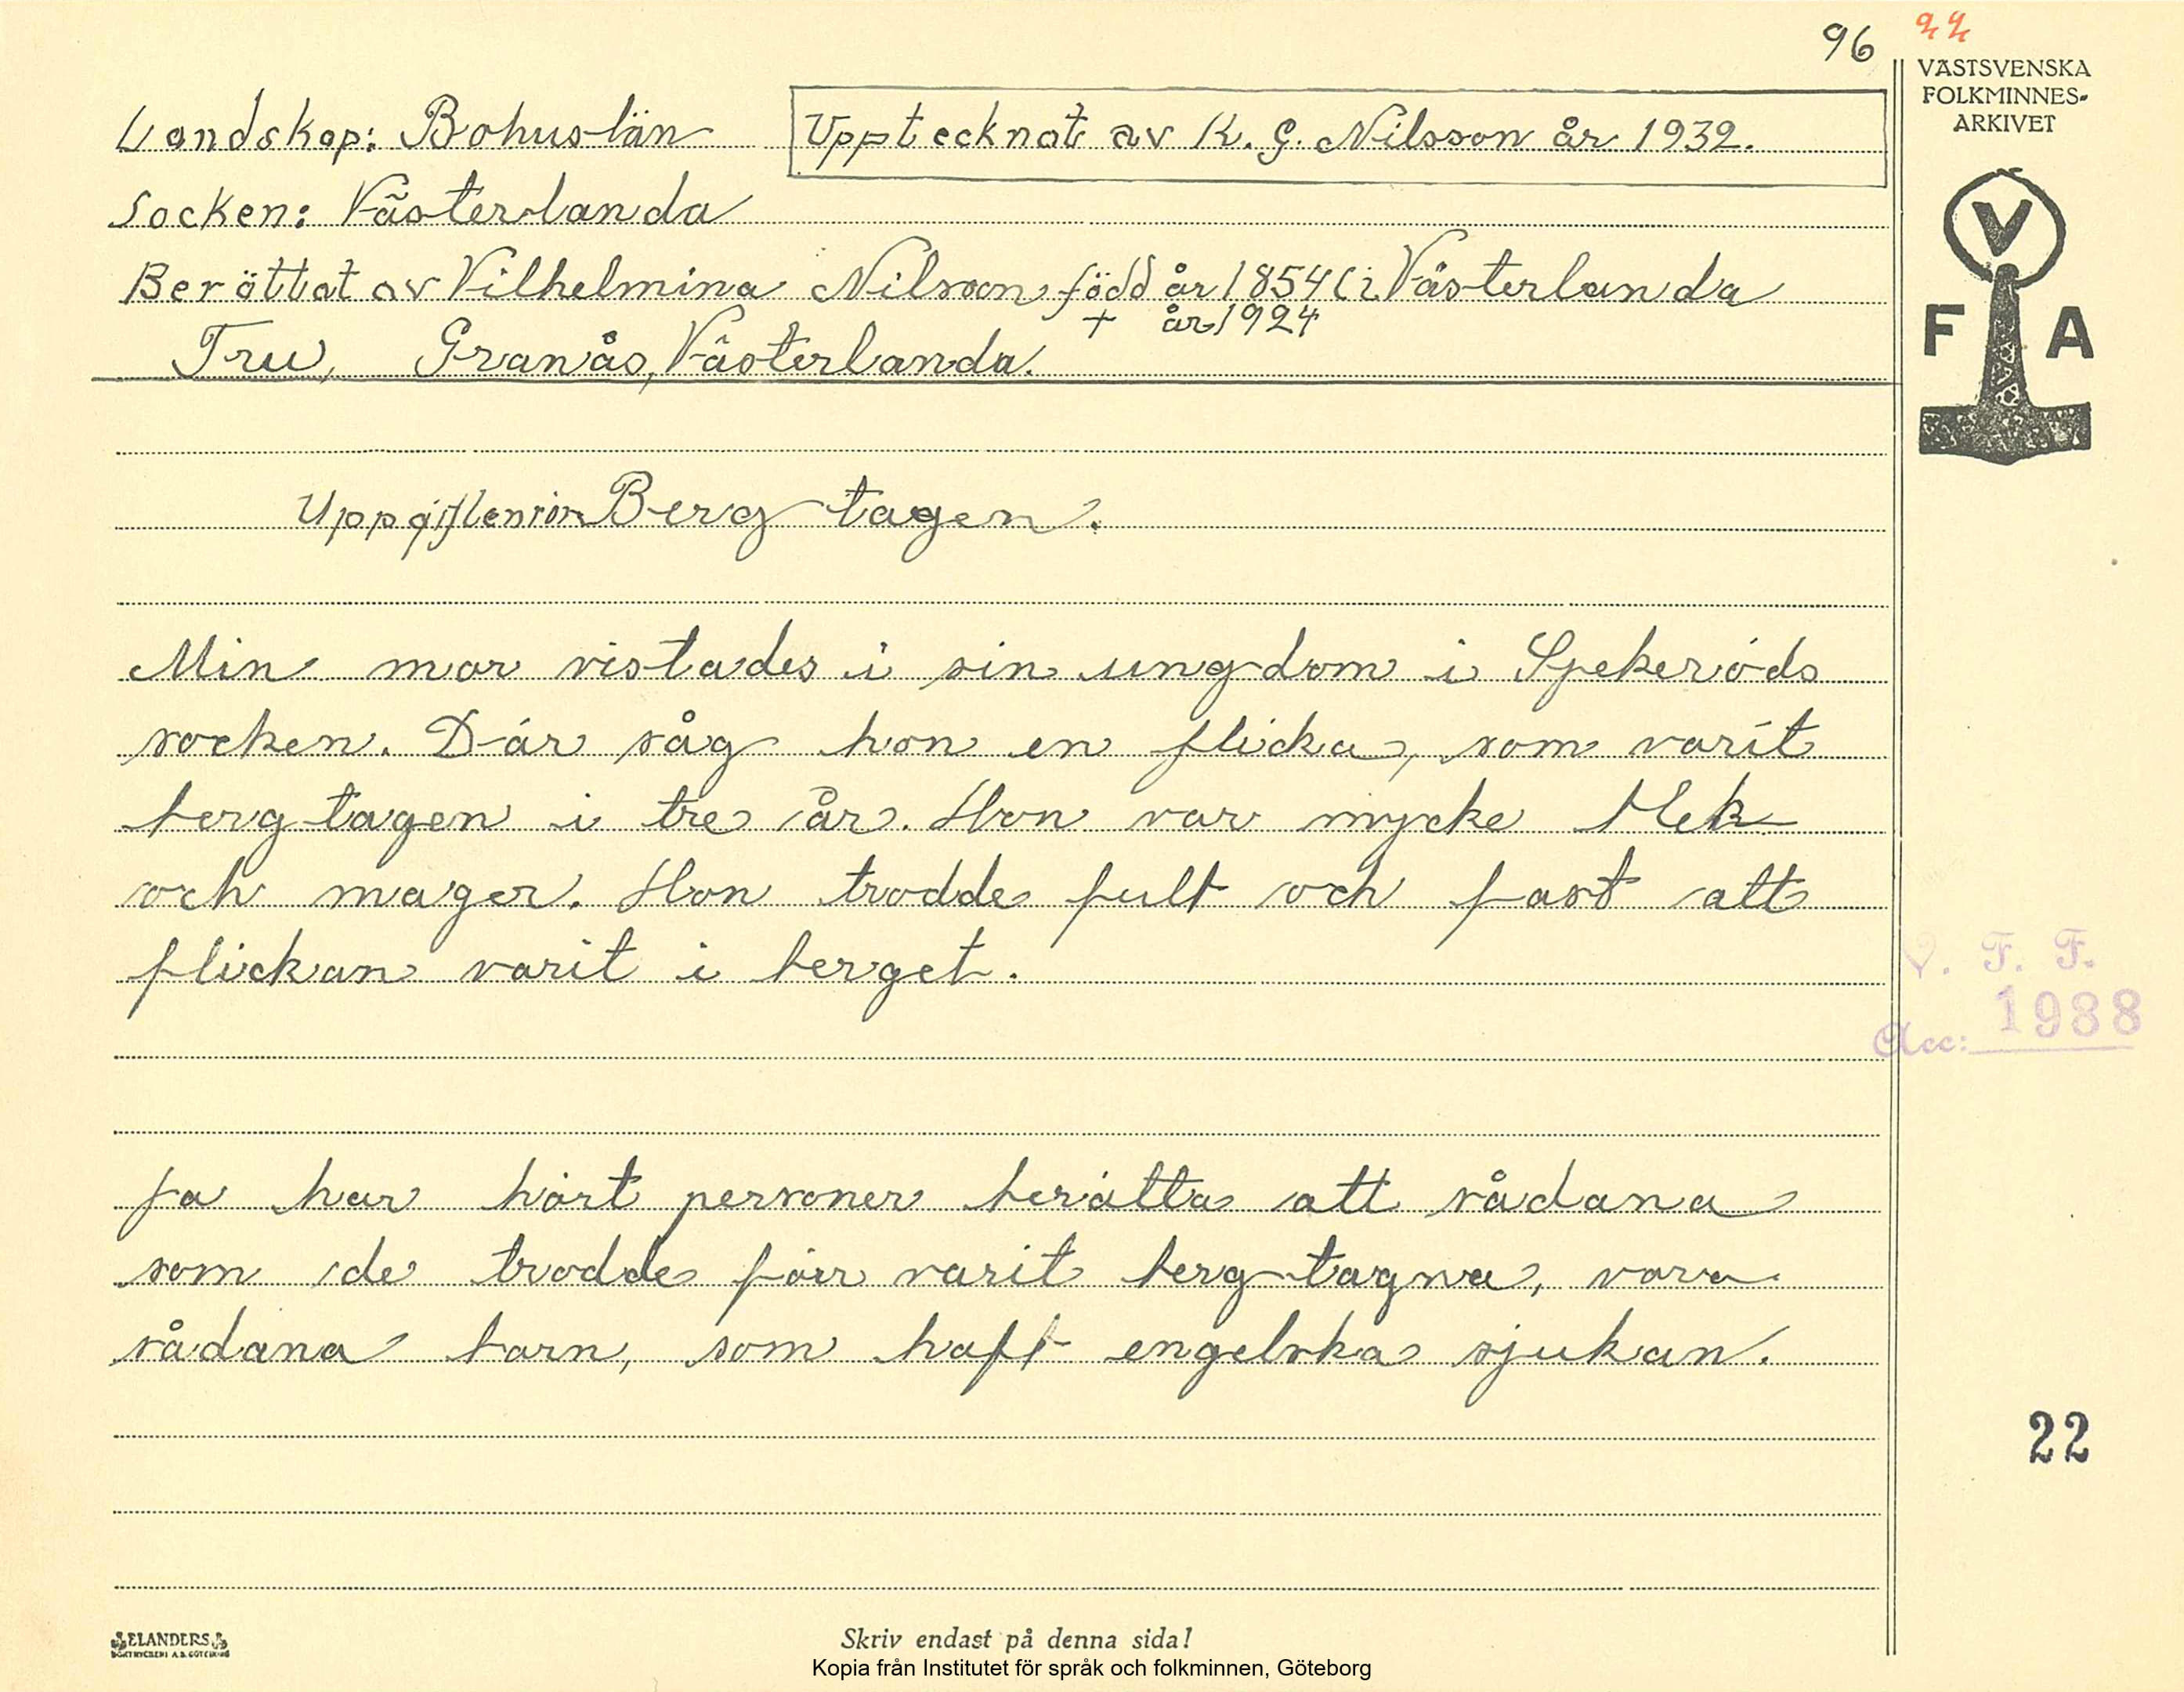 96 22
VÄSTSVENSKA
FOLKMINNES-
ARKIVET
Landskap: Bohuslän
Upptecknat av K. G. Nilsson år 1932.
Socken: Västerlanda
Berättat av Vilhelmina Nilsson född år 1854 i Västerlanda
+ år 1924
Fru, Granås, Västerlanda.
V
F A
Uppgiften rör Bergtagen.
Min mor vistades i sin ungdom i Spekeröds
socken. Där såg hon en flicka, som varit
bergtagen i tre år. Hon var mycke blek
och mager. Hon trodde fullt och fast att
flickan varit i berget.
V. F. F.
Acc: 1988
Ja har hört personer berätta att sådana
som de trodde förr varit bergtagna, vara
sådana barn, som haft engelska sjukan.
22
ELANDERS
BOKTRYCKERI A.B. GÖTEBORG
Skriv endast på denna sida!
Kopia från Institutet för språk och folkminnen, Göteborg